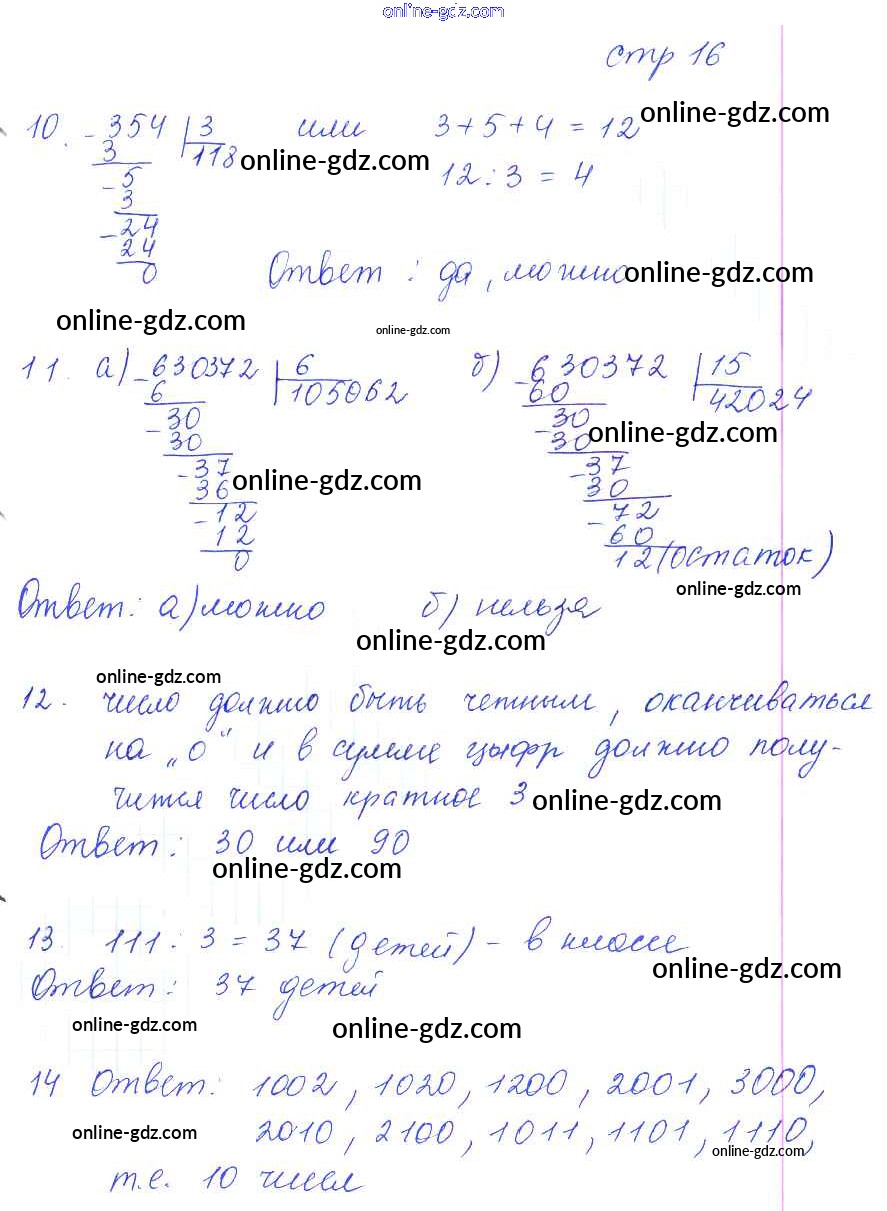 online-gdz.com
стр 16
10. - 354 | 3 или 3+5+4 = 12 online-gdz.com
3 118 online-gdz.com 12 : 3 = 4
- 5
3
- 24
24
0 Ответ : да, можно online-gdz.com
online-gdz.com online-gdz.com
11. а) - 630372 | 6 б) - 630372 | 15
6 105062 60 42024
- 30 - 30 online-gdz.com
30 30
- 37 online-gdz.com - 37
36 30
- 12 - 72
12 60
0 12 (остаток)
online-gdz.com
Ответ: а) можно б) нельзя
online-gdz.com
online-gdz.com
12. число должно быть четным, оканчиваться
на „0" и в сумме цыфр должно полу-
чится число кратное 3 online-gdz.com
Ответ: 30 или 90
online-gdz.com
13. 111 : 3 = 37 (детей) - в классе
online-gdz.com
Ответ: 37 детей
online-gdz.com online-gdz.com
14 Ответ: 1002, 1020, 1200, 2001, 3000,
online-gdz.com 2010, 2100, 1011, 1101, 1110,
online-gdz.com
т.е. 10 чисел